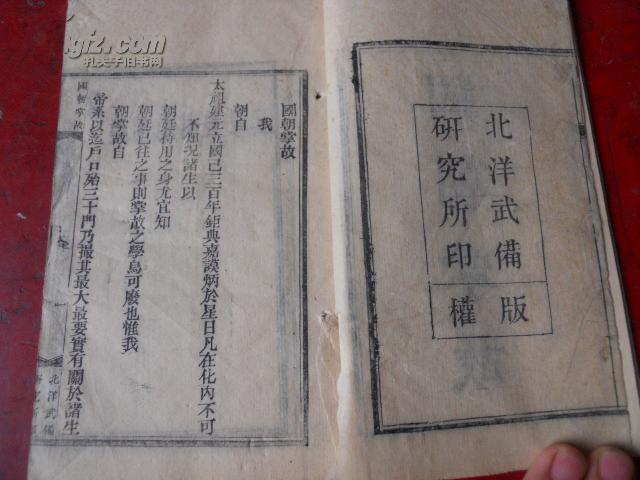 北洋武備
研究所印
版
權
國朝掌故
我
朝自
太祖建元立國已三百年鉅典嘉謨炳於星日凡在化內不可
不知況諸生以
朝廷待用之身尤宜知
朝廷已往之事則掌故之學烏可廢也惟我
朝掌故自
帝系以迄戶口殆三十門乃撮其最大最要實有關於諸生
國朝掌故
北洋武備
研究所印
孔夫子旧书网